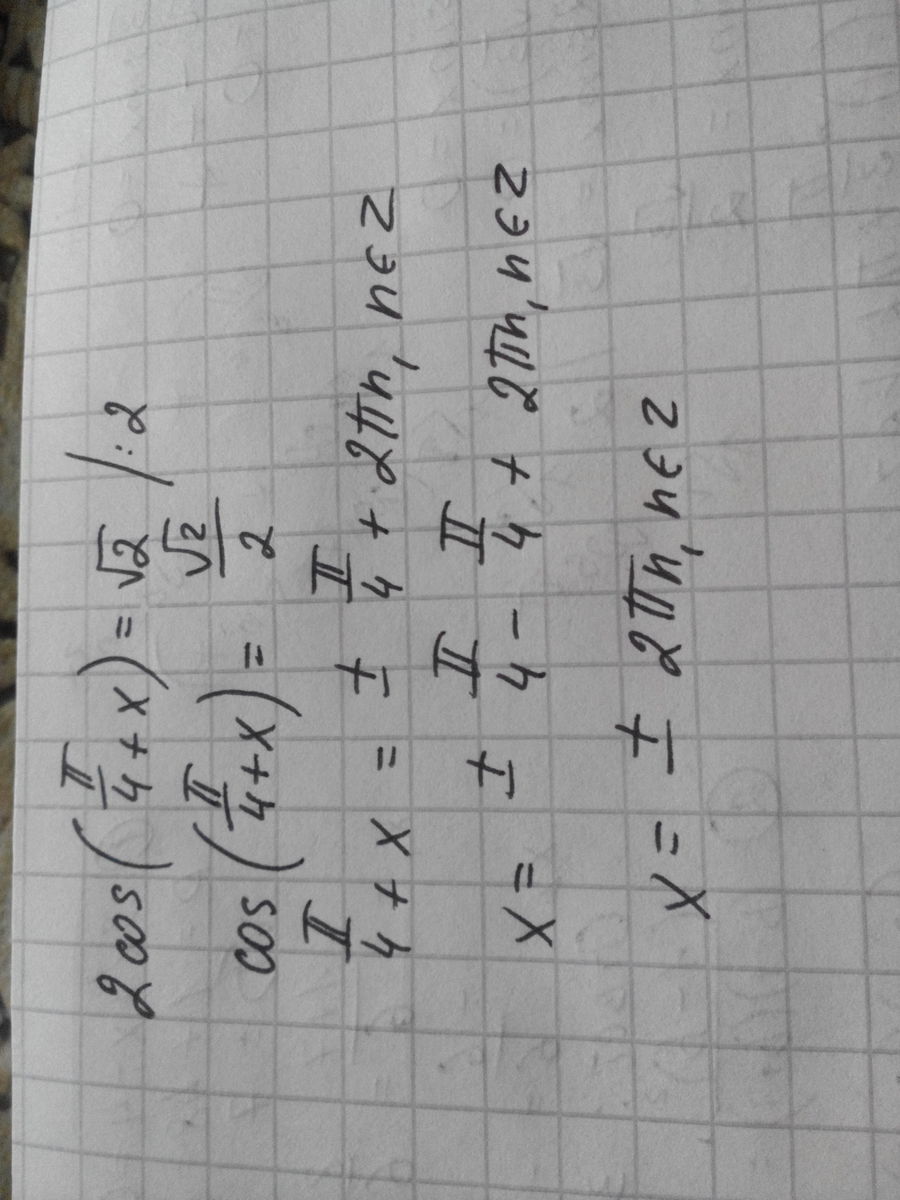 2cos(π/4 + x) = √2 /:2
cos(π/4 + x) = √2/2
π/4 + x = ± π/4 + 2πn, n ∈ z
x = ± π/4 - π/4 + 2πn, n ∈ z
x = ± 2πn, n ∈ z